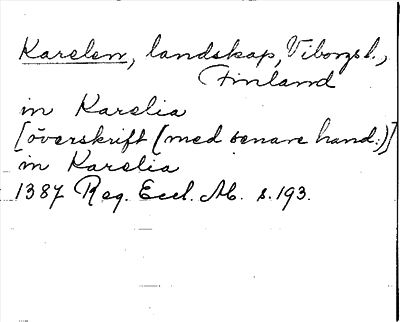 Karelen, landskap, Viborgs l.,
Finland
in Karelia
[överskrift (med senare hand:)]
in Karelia
1387 Reg. Eccl. Ab. s. 193.